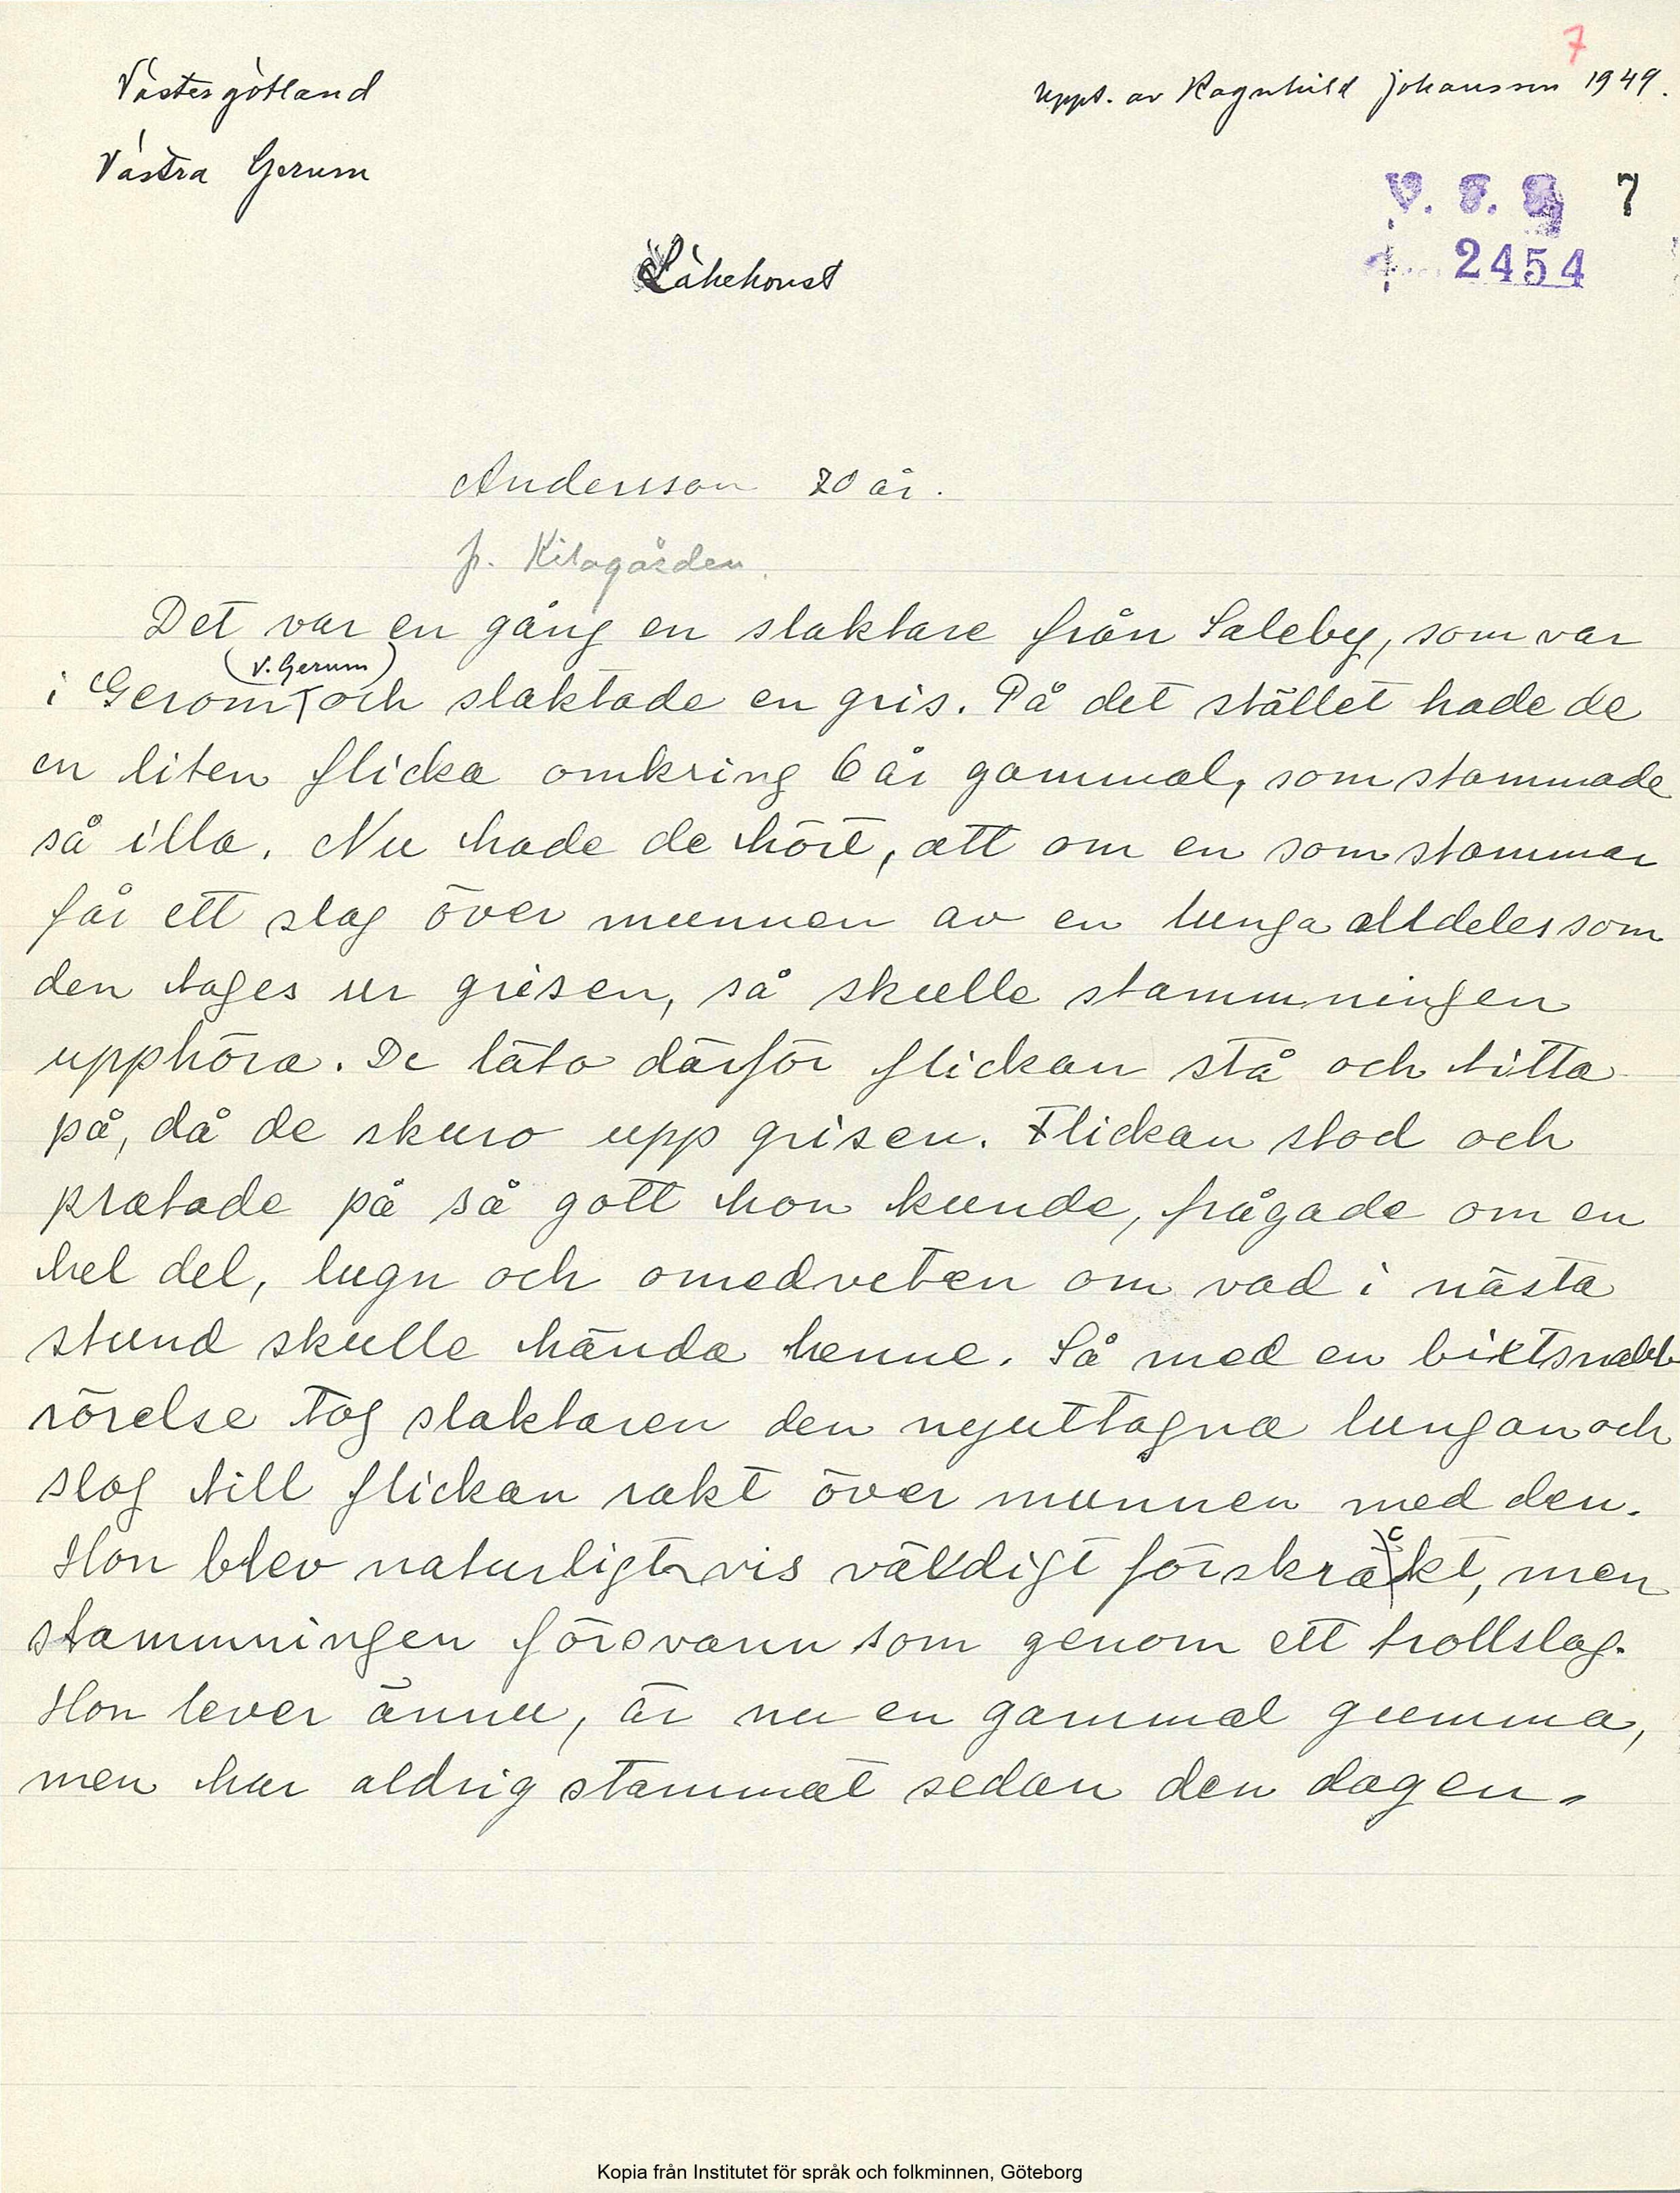 7
Västergötland
Uppt. av Ragnhild Johansson 1949.
Västra Gerum
V. F. S. 7
2454
Läkekonst
Andersson 70 år.
fr. Kilagården.
Det var en gång en slaktare från Saleby, som var
(V. Gerum)
i Gerom och slaktade en gris. På det stället hade de
en liten flicka omkring 6 år gammal, som stammade
så illa. Nu hade de hört, att om en som stammar
får ett slag över munnen av en lunga alldeles som
den tages ur grisen, så skulle stammningen
upphöra. De läto därför flickan stå och titta
på, då de skuro upp grisen. Flickan stod och
pratade på så gott hon kunde, frågade om en
hel del, lugn och omedveten om vad i nästa
stund skulle hända henne. Så med en blixtsnabb
rörelse tog slaktaren den nyuttagna lungan och
slog till flickan rakt över munnen med den.
Hon blev naturligtvis väldigt förskräckt, men
stammningen försvann som genom ett trollslag.
Hon lever ännu, är nu en gammal gumma,
men har aldrig stammat sedan den dagen.
Kopia från Institutet för språk och folkminnen, Göteborg